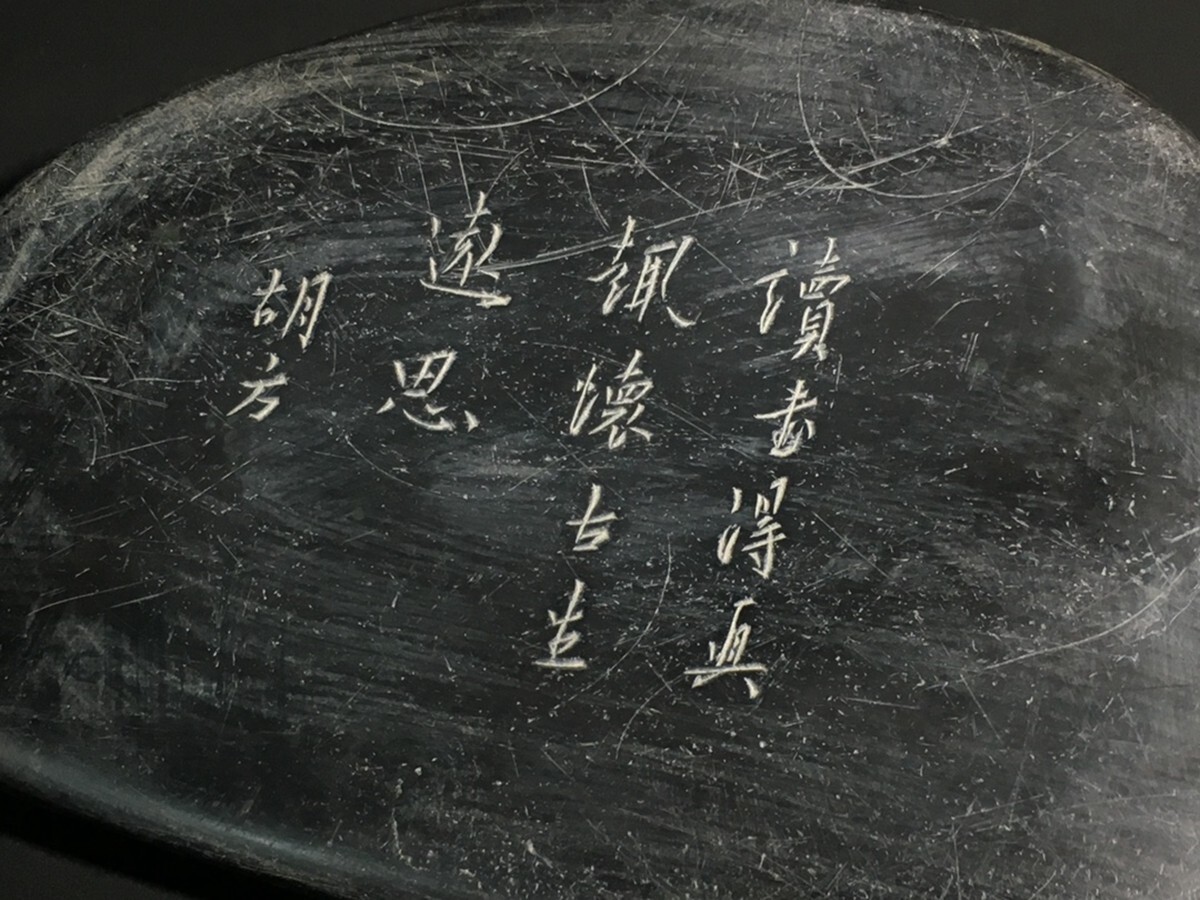 讀書得真
趣懷古生
遠思
胡方